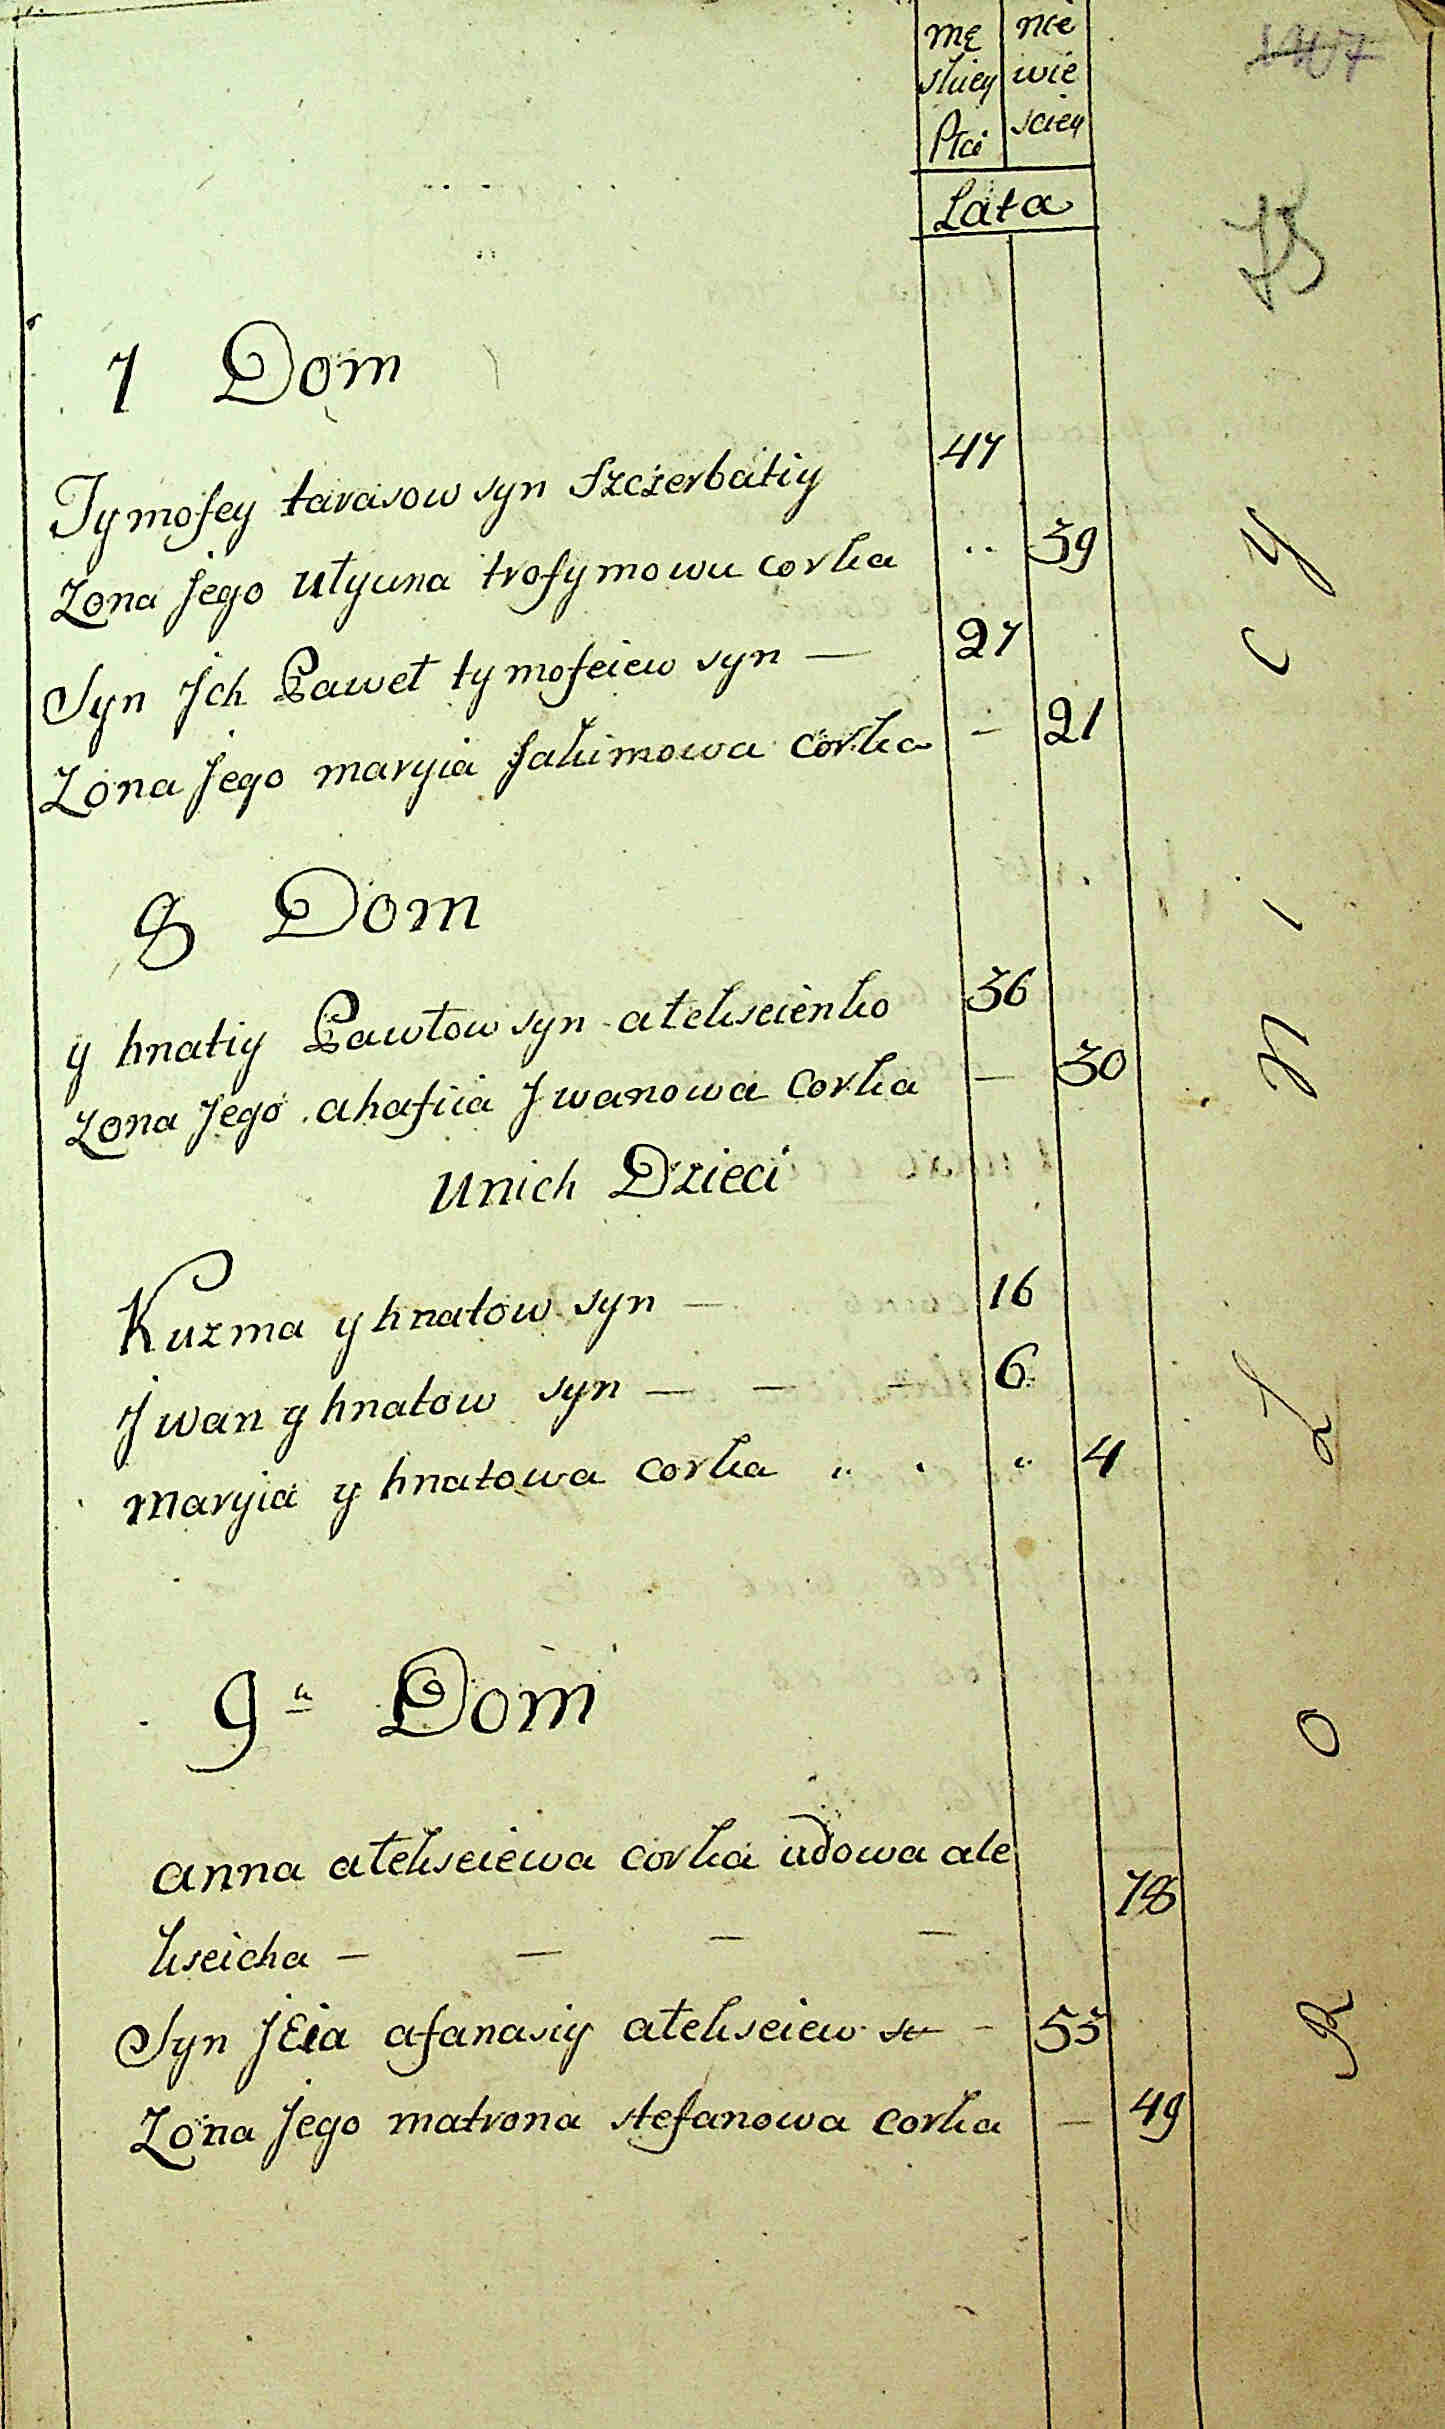 mę nie
skiey wie
Płci sciey
Lata
7 Dom
Tymofey tarasow syn Szczerbatiy 47
Zona Jego Ulyana trofymowa corka .. 39
Syn Jch Paweł tymofeiew syn — 27
Zona Jego maryia Jakimowa corka - 21
8 Dom
y hnatiy Pawłow syn ałekseienko 36
Zona Jego ahafiia Jwanowa corka — 30
Unich Dzieci
Kuzma y hnatow syn — 16
Jwan y hnatow syn — — — 6
maryia y hnatowa corka 4
9 Dom
anna ałekseiewa corka udowa ale
kseicha — — — — 78
Syn JEia afanasiy ałekseiew - 55
Zona Jego matrona stefanowa corka — 49
R O L n i c y